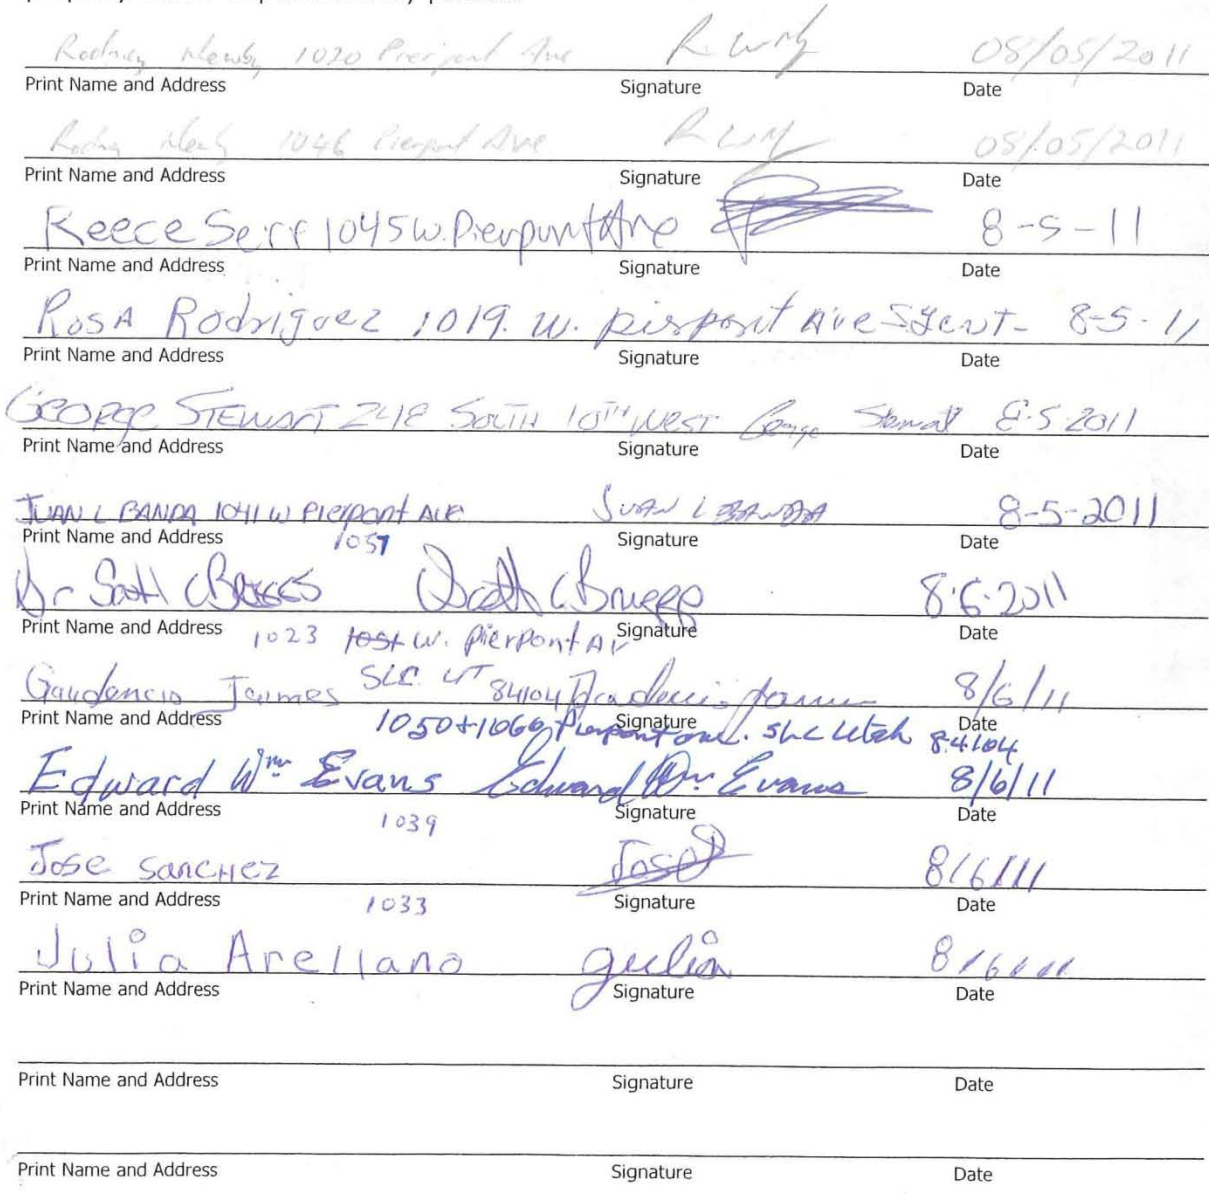 Rodney Newby 1020 Pierpont Ave R W N 08/05/2011
Print Name and Address Signature Date
Rodney Newby 1046 Pierpont Ave R W N 08/05/2011
Print Name and Address Signature Date
Reece Serf 1045 W. Pierpont Ave 8-5-11
Print Name and Address Signature Date
ROSA Rodriguez 1019. W. pierpont Ave 8-5-11
Print Name and Address Signature Date
GEORGE STEWART 248 SOUTH 10TH WEST George Stewart 8-5-2011
Print Name and Address Signature Date
JUAN L BANDA 1041 W Pierpont AVE JUAN L BANDA 8-5-2011
Print Name and Address Signature Date
1057
Dr Scott C 8-6-2011
Print Name and Address Signature Date
1023 1051 W. Pierpont AV
Gaudencio Jaimes SLC UT 84104 Gaudencio Jaimes 8/6/11
Print Name and Address Signature Date
1050+1066 Pierpont ave. SLC Utah 84104
Edward Wm Evans Edward Wm. Evans 8/6/11
Print Name and Address Signature Date
1039
Jose Sanchez Jose 8/6/11
Print Name and Address Signature Date
1033
Julia Arellano Julia 8/6/11
Print Name and Address Signature Date
Print Name and Address Signature Date
Print Name and Address Signature Date